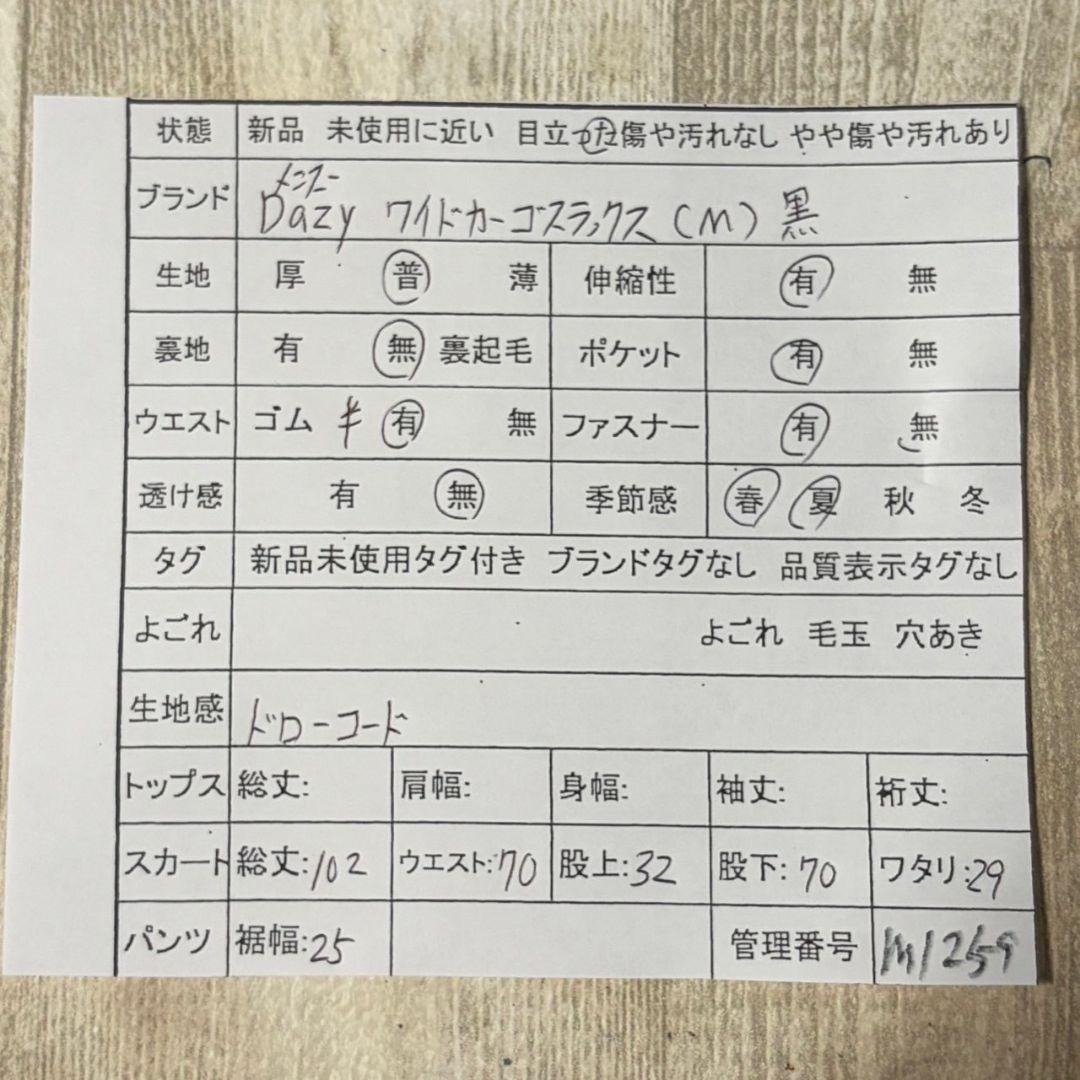 状態 新品 未使用に近い 目立った傷や汚れなし やや傷や汚れあり
ブランド Dazy ワイドカーゴスラックス(M) 黒
生地 厚 普 薄 伸縮性 有 無
裏地 有 無 裏起毛 ポケット 有 無
ウエスト ゴム 有 無 ファスナー 有 無
透け感 有 無 季節感 春 夏 秋 冬
タグ 新品未使用タグ付き ブランドタグなし 品質表示タグなし
よごれ よごれ 毛玉 穴あき
生地感 ドローコード
トップス 総丈: 肩幅: 身幅: 袖丈: 裄丈:
スカート 総丈:102 ウエスト:70 股上:32 股下:70 ワタリ:29
パンツ 裾幅:25 管理番号 M1259